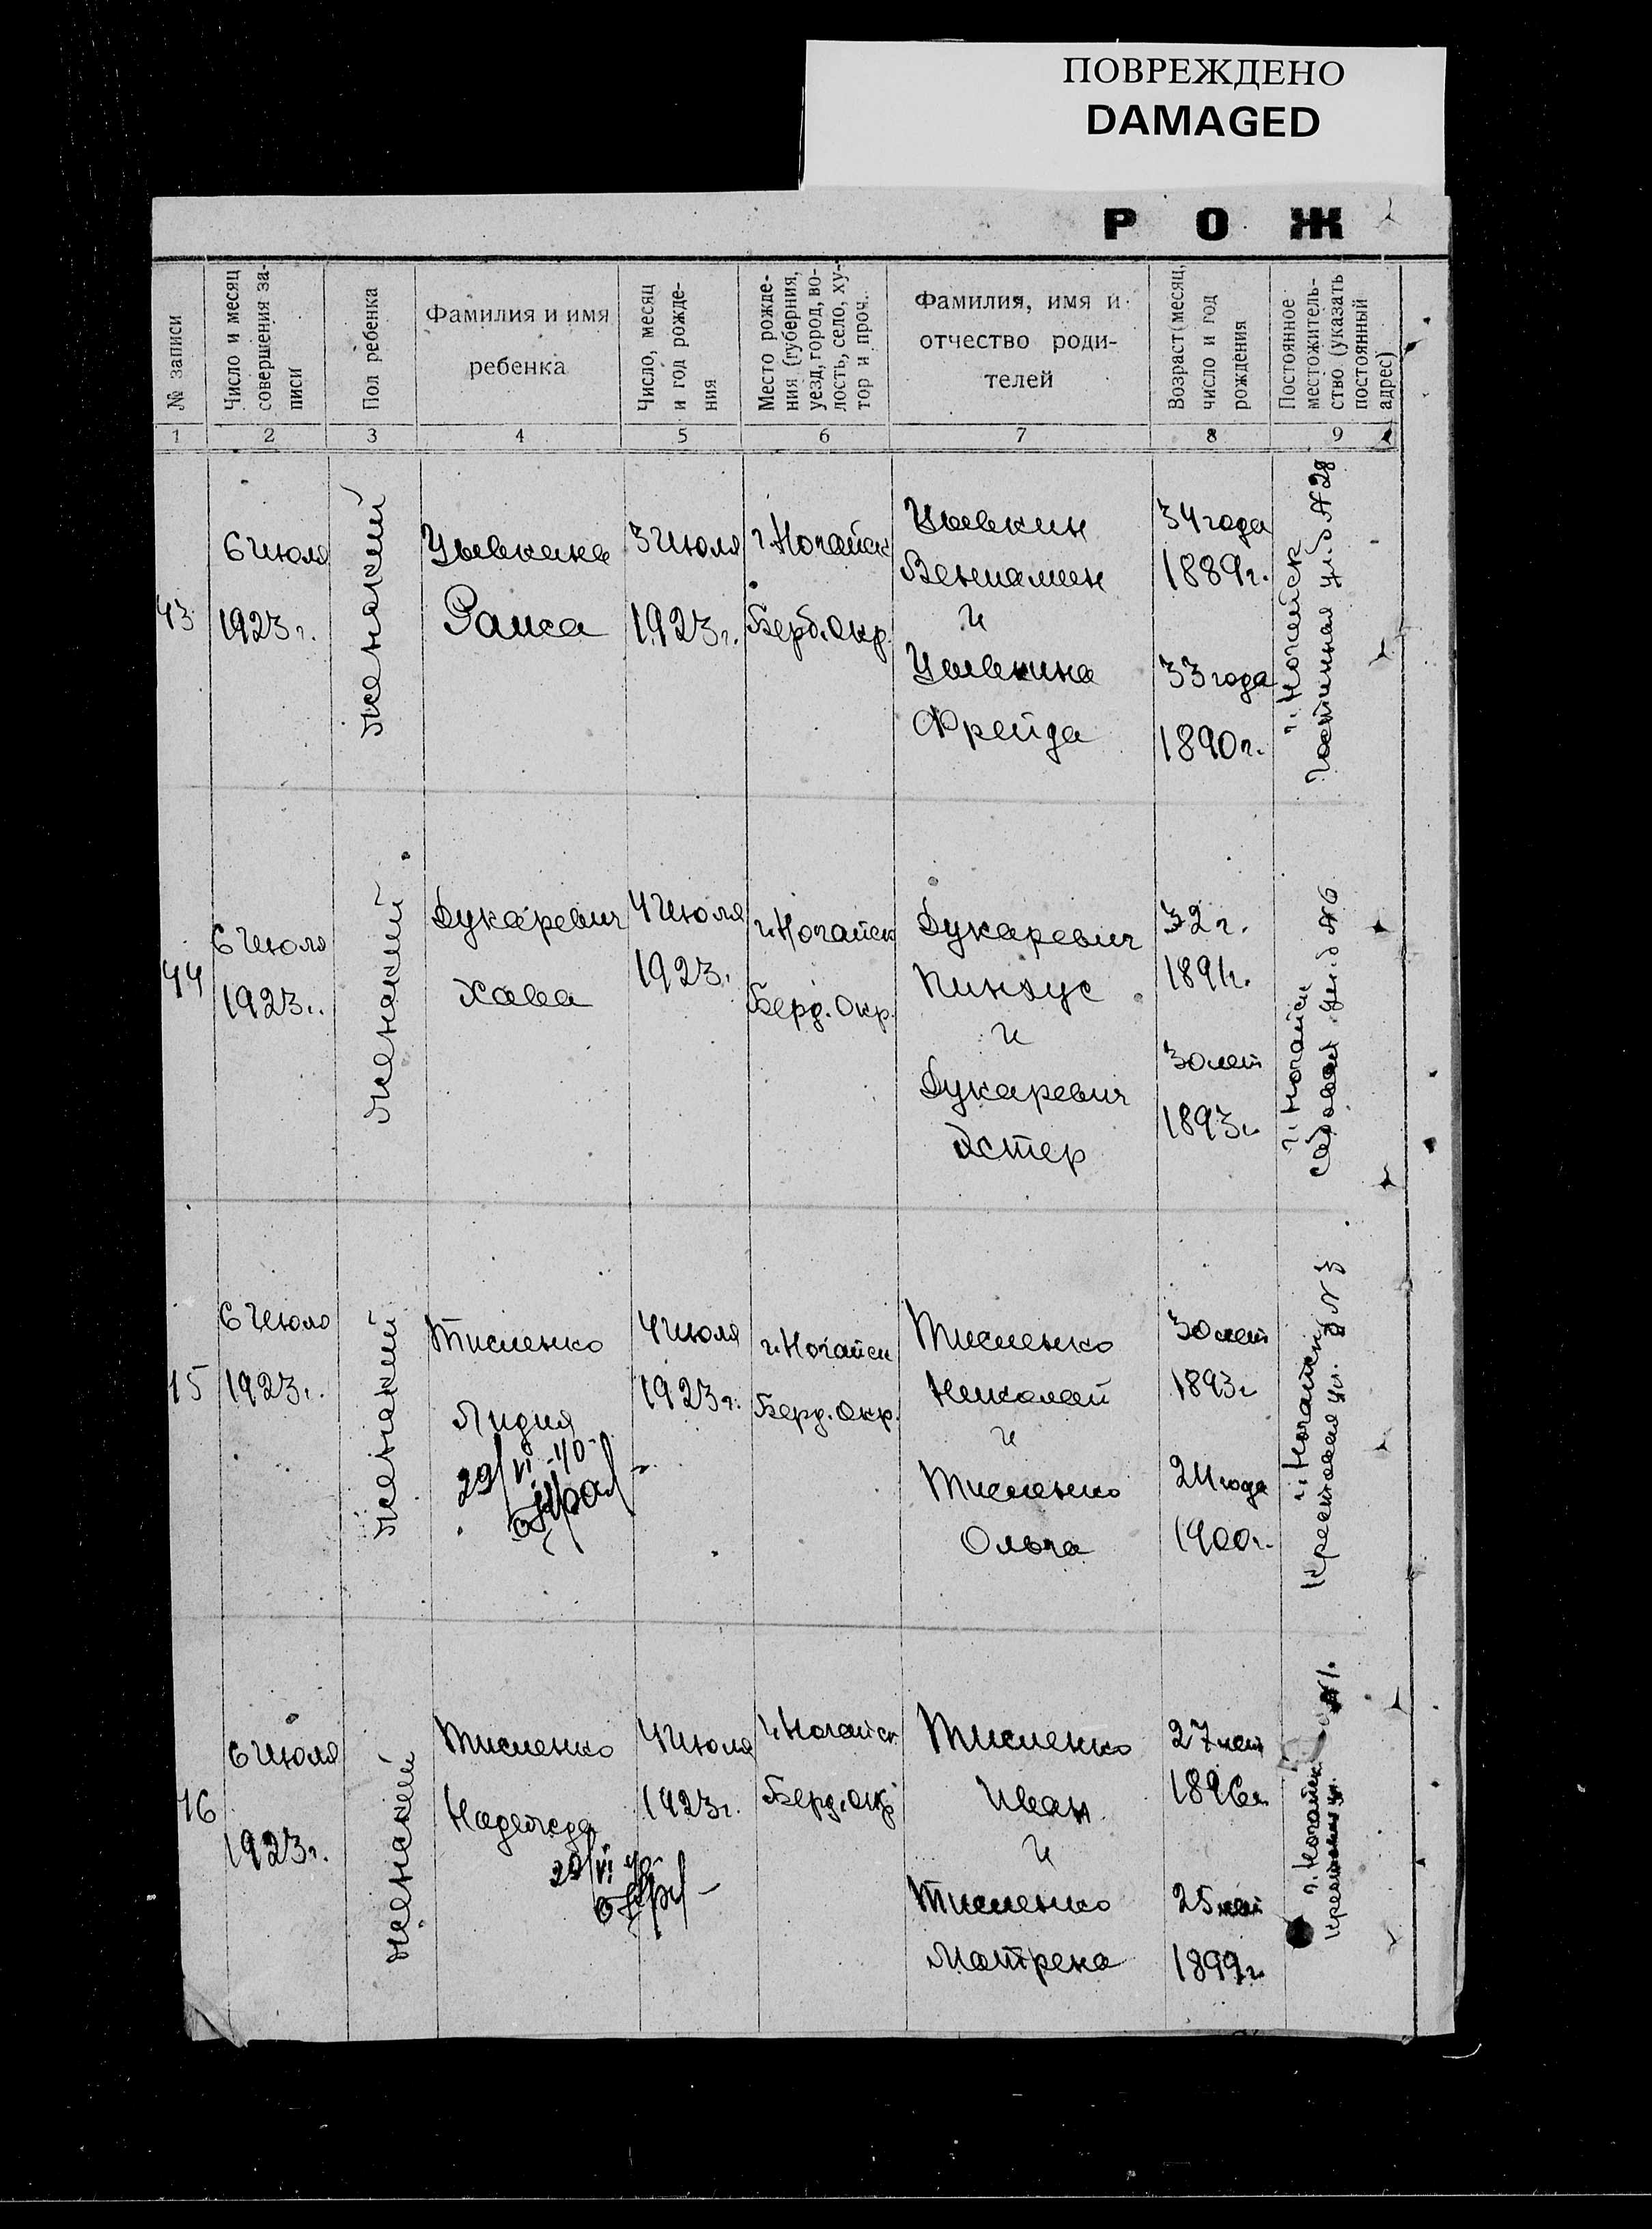 ПОВРЕЖДЕНО
DAMAGED
Р О Ж
№ записи
Число и месяц
совершения за-
писи
Пол ребенка
Фамилия и имя
ребенка
Число, месяц
и год рожде-
ния
Место рожде-
ния (губерния,
уезд, город, во-
лость, село, ху-
тор и проч.
Фамилия, имя и
отчество роди-
телей
Возраст (месяц,
число и год
рождения
Постоянное
местожитель-
ство (указать
постоянный
адрес)
1 2 3 4 5 6 7 8 9
43
6 Июля
1923 г.
женский
Цывкина
Раиса
3 Июля
1923 г.
г. Ногайск
Берд. Окр.
Цывкин
Вениамин
и
Цывкина
Фрейда
34 года
1889 г.
33 года
1890 г.
г. Ногайск
Гостинная ул. д. № 28
44
6 Июля
1923 г.
женский
Дукаревич
Хава
4 Июля
1923 г.
г. Ногайск
Берд. Окр.
Дукаревич
Пинхус
и
Дукаревич
Эстер
32 г.
1891 г.
30 лет
1893 г.
г. Ногайск
Садовая ул. д. № 6
15
6 Июля
1923 г.
женский
Тисленко
Лидия
29/VI-40
4 Июля
1923 г.
г. Ногайск
Берд. Окр.
Тисленко
Николай
и
Тисленко
Ольга
30 лет
1893 г.
24 года
1900 г.
г. Ногайск
ул. № 3
16
6 Июля
1923 г.
женский
Тисленко
Надежда
29/VI 40
4 Июля
1923 г.
г. Ногайск
Берд. Окр.
Тисленко
Иван
и
Тисленко
Матрена
27 лет
1896 г.
25 лет
1899 г.
г. Ногайск
ул. № 1.